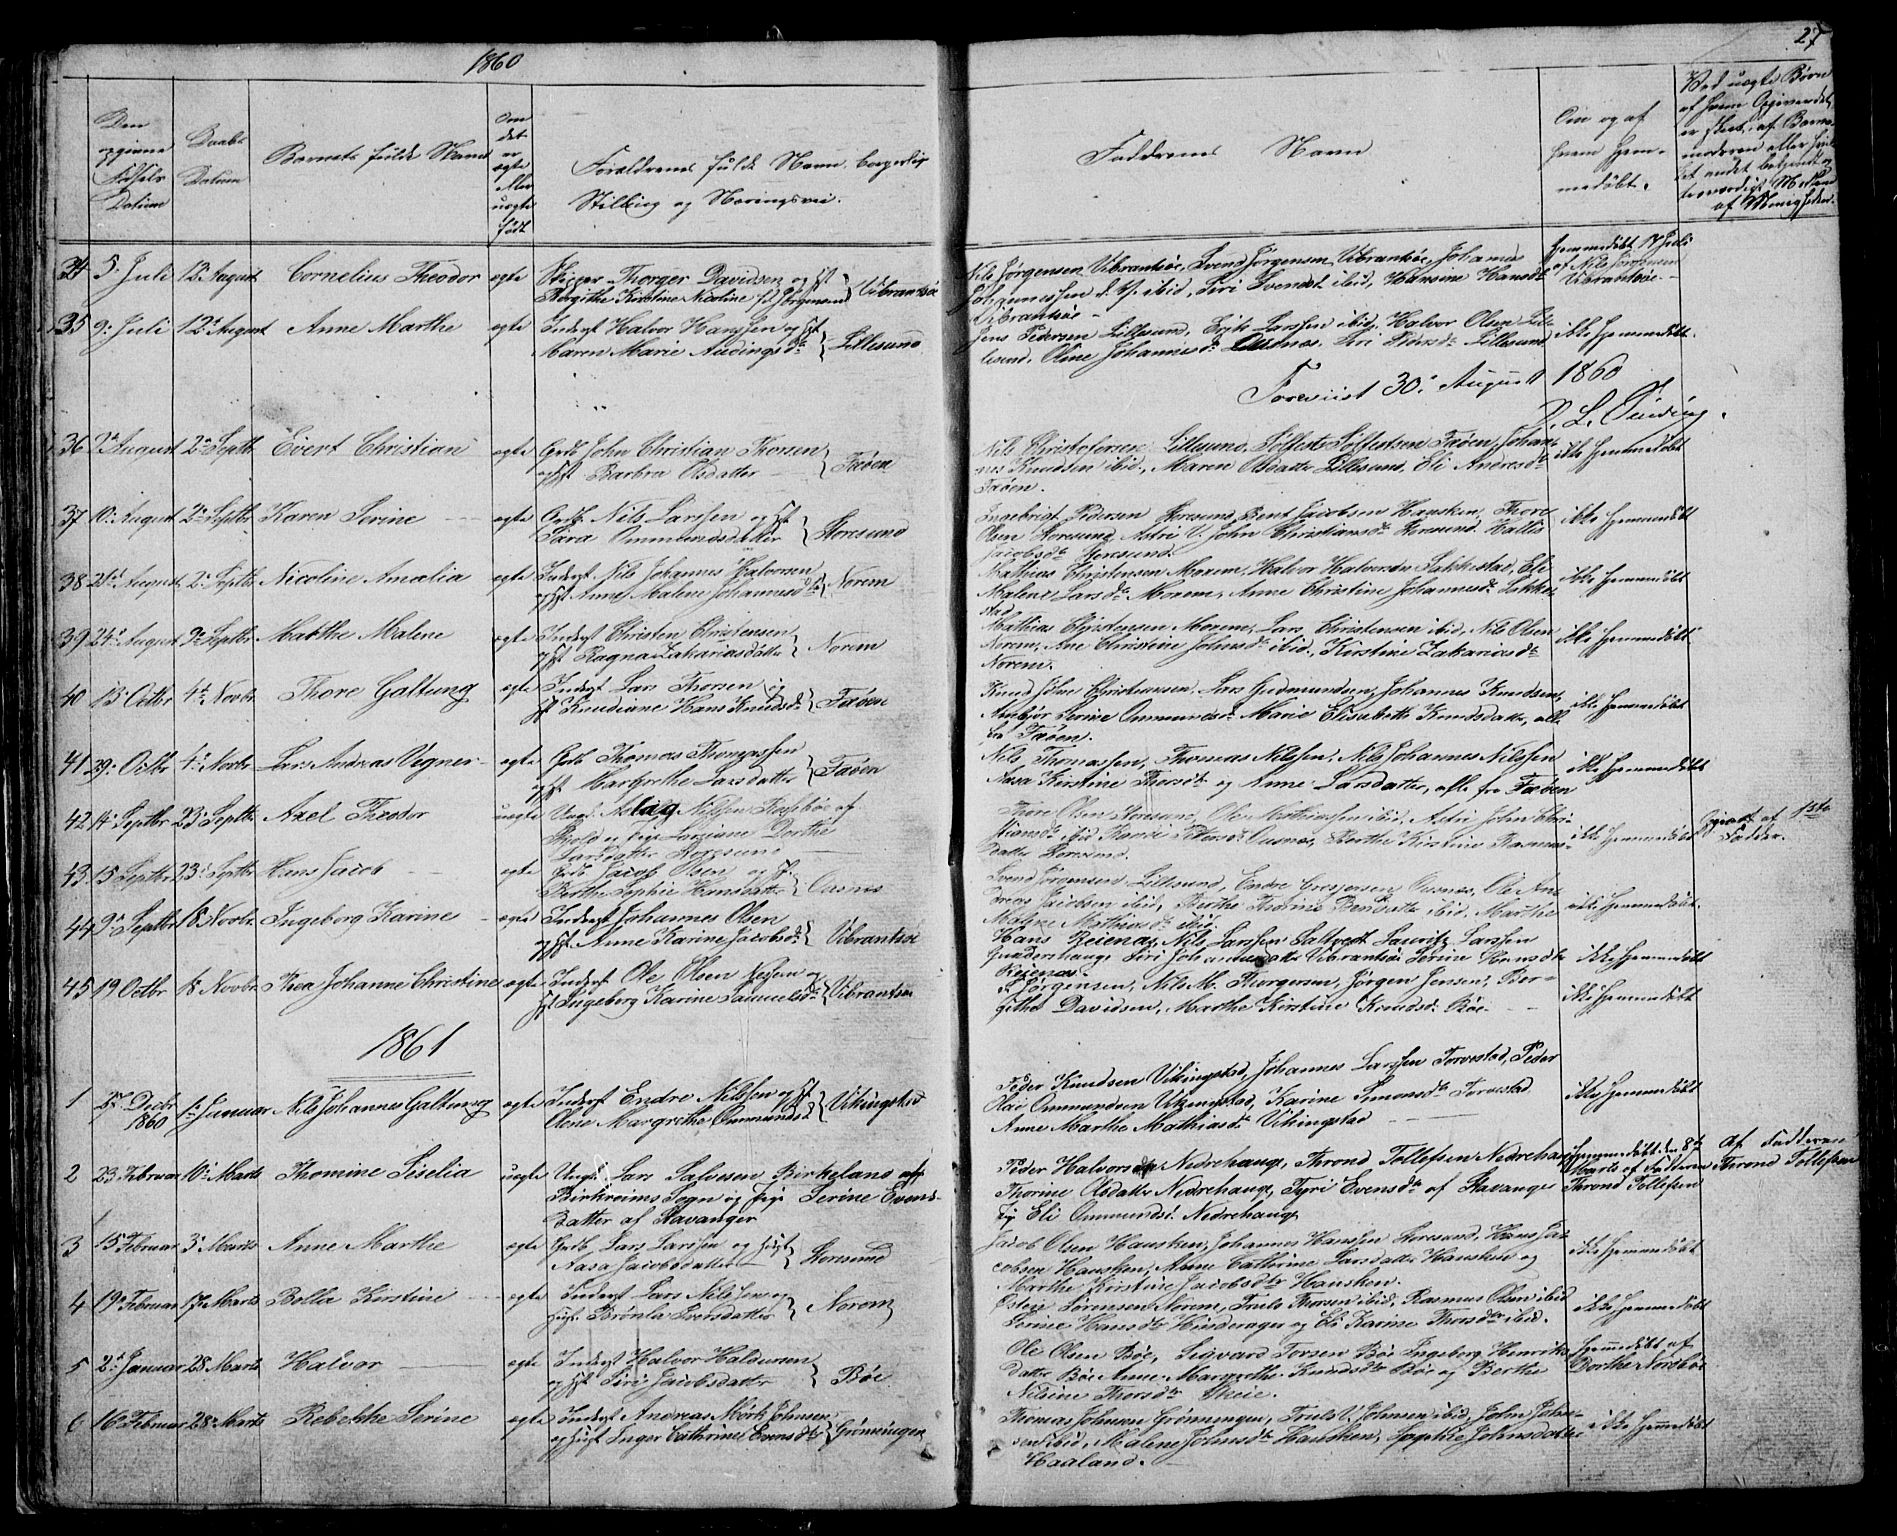 1860
27
Den opgivne Fødsels Datum
Daabs Datum
Barnets fulde Navn
Om det er ægte eller uægte født
Forældrenes fulde Navn borgerlig Stilling og Næringsvei.
Faddrenes Navn
Om og af hvem hjemmedøbt.
Ved uægte Børn af hvem Opgivendet er skeet, af Barnemoderen eller
34 5. Juli 12. August Cornelius Theodor ægte Thorger Davidsen og Hst Kirstine Nicoline Vibrantsø
Nils Jørgensen Vibrantsøe, Svend Jørgensen Vibrantsøe, Johannes
Johannessen ibid, Siri Svendsd. ibid, Hansine Hansd.
Vibrantsøe
hjemmedøbt 17 Juli af Nils Jørgensen Vibrantsøe
35 9. Juli 12. August Anne Marthe ægte Inderst Halvor Hanssen og Hst Maren Marie Audingsdr. Lillesund
Jens Pedersen Lillesund, Erik Larssen ibid, Halvor Olsen Lil-
lesund, Oline Johannesdr. Ausnæs, Siri Larsdr. Lillesund
ikke hjemmedøbt.
Foreviist 30. August 1860
36 August 2. Septbr Evert Christian ægte Grdb John Christian Thorsen og Hst Barbra Olsdatter Faøen
Nils Christofersen Lillesund, Tollef Tollefsen Faøen, Johan-
nes Knudsen ibid, Maren Olsdatter Lillesund, Eli Andreasdr.
Faøen.
ikke hjemmedøbt
37 10. August 2. Septbr Karen Serine ægte Grdb. Nils Larssen og Hst Sara Ommundsdatter Storesund
Ingebrigt Pedersen Storesund, Bent Jacobsen Hausken, Thore
Olsen Storesund, Astri V. John Christiansdr. Storesund. Hallis
Jacobsdr. Storesund.
ikke hjemmedøbt
38 21. August 2. Septbr Nicoline Amalia ægte Inderst Nils Johannes Halvorsen og Hst Anne Malene Johannesdr. Norem
Mathias Christensen Norem, Halvor Halvorsen Sakkestad, Eli
Malene Larsdr. Norem, Anne Christine Johannesdr. Sakke-
stad
ikke hjemmedøbt
39 24. August 2. Septbr Marthe Malene ægte Inderst Christen Christensen Hst Ragna Zakariasdatter Norem
Mathias Christensen Norem, Lars Christensen ibid, Nils Olsen
Norem, Ane Christine Johnsdr. ibid, Kirstine Zakariasdr.
Norem.
ikke hjemmedøbt
40 13. Octbr 4. Novbr. Thore Galtung ægte Inderst Lars Thorsen og Hst Knudiane Hans Knudsd. Faøen
Knud John Christiansen, Lars Gudmundsen, Johannes Knudsen,
Serine Ommundsd. Marie Elisabeth Knudsdatter, alle
fra Faøen.
ikke hjemmedøbt
41 29. Octbr 4. Novbr Lars Andreas Vegner ægte Grdb Thomas Thomassen Hst Margrethe Larsdatter Faøen
Nils Thomassen, Thomas Nilssen, Nils Johannes Nilssen
Nasa Kirstine Thorsdr. og Anne Larsdatter, alle fra Faøen
ikke hjemmedøbt
42 14. Septbr 23. Septbr Axel Theodor uægte Ungk. Aslag Nilssen af Skjold og Pige Dorthe Larsdatter Storesund
Thore Olsen Storesund, Ole Mathiassen ibid, Astri John Chri-
stiansdr. ibid Karine Ausnæs, Berthe Kirstine Rasmus-
datter Storesund.
ikke hjemmedøbt
Opgivet af 1ste Fadder.
43 15 Septbr 23. Septbr Hans Jacob ægte Grdb Jacob Olsen og Hst. Berthe Sophie Hansdatter Ausnes
Svend Jørgensen Lillesund, Endre Ausnæs, Ole An-
dreas Jacobsen ibid, Berthe Thorine Bendsdatter ibid, Marthe
Malene Mathiasdr. ibid.
ikke hjemmedøbt.
44 9. Septbr 18 Novbr. Ingeborg Karine ægte Inderst Johannes Olsen og Hst. Anne Karine Jacobsdr. Vibrantsøe
Hans Reienæs, Nils Larssen Saltvedt Lauritz Larssen
Gundershaug Siri Vibrantsøe Serine Hansdr.
Reienæs.
ikke hjemmedøbt
45 19 Octbr 18 Novbr. Thea Johanne Christine ægte Inderst Ole Olsen og Hst Ingeborg Karine Samuelsdr. Vibrantsøe
Jørgensen, Nils M. Thorgersen, Jørgen Jensen, Ber-
githe Davidsen, Marthe Kirstine Knudsd. Bøe
ikke hjemmedøbt
1861
1 27. Decbr 1860 1. Januar Nils Johannes Galtung ægte Inderst Endre Nilssen og Hst Olene Margrethe Ommundsd. Vikingstad
Peder Knudsen Vikingstad, Johannes Larssen Torvestad, Peder
Olai Ommundsen Vikingstad, Karine Simonsdr. Torvestad
Anne Marthe Mathiasdr. Vikingstad
ikke hjemmedøbt
2 23 Februar 10. Marts Thomine Siselia uægte Ungk. Lars Salvesen Birkeland af Birkreims Sogn og Pige Serine Evens- datter af Stavanger
Peder Halvorsen Nedrehaug, Thrond Tollefsen Nedrehaug
Thorine Olsdatter Nedrehaug, Tyri Evensdr. af Stavanger
Pig Eli Ommundsd. Nedrehaug
hjemmedøbt den 8de Marts af Fadderen Thrond Tollefsen
Af Fadderen Thrond Tollefsen
3 15 Februar 3. Marts Anne Marthe ægte Grdb Lars Larssen og Hust Nasa Jacobsdatter Storesund
Jacob Olsen Hausken, Johannes Hanssen Storesund, Hans Ja-
cobsen Hausken, Anne Cathrine Larsdatter Hausken og
Marthe Kirstine Jacobsdr. Hausken.
ikke hjemmedøbt
4 19. Februar 17. Marts Bolla Kirstine ægte Inderst Lars Nilssen og Hust. Brønla Iversdatter Norem
Østen Sørensen Norem, Truls Thorsen ibid, Rasmus Olsen ibid
Serine Hansdr. Hinderager og Eli Karine Thorsdr. ibid.
ikke hjemmedøbt
5 2. Januar 28 Marts Halvor ægte Inderst Halvor Haldorsen og Hst Siri Jacobsdatter Bøe
Ole Olsen Bøe, Sievard Torsen Bø Ingeborg Henriks-
datter Bøe Anne Margrethe Knudsdr. Bøe og Berthe
Nilsine Thorsdr. Skeie.
hjemmedøbt af Dorthe Nordbøe
6 16. Februar 28. Marts Rebekke Serine ægte Inderst Andreas Mørk Johnsen og Hust Inger Cathrine Evensdr. Grønningen
Thomas Johnsen Grønningen, Truls V. Johnsen ibid, John John-
sen ibid, Malene Johnsdr. Hausken, Johnsdatter
Haaland.
ikke hjemmedøbt